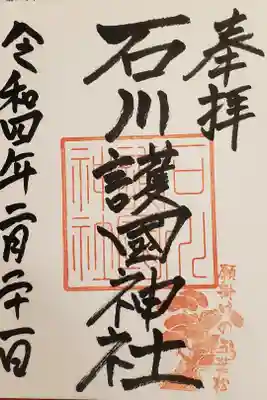 奉拝
石川護國神社
令和四年二月二十一日